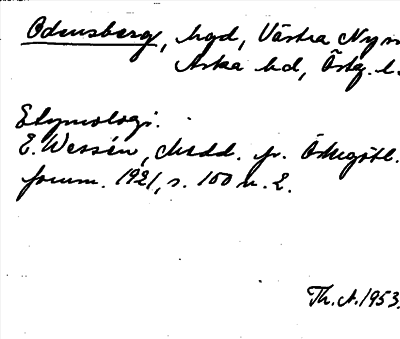 Odensberg, hgd, Västra Ny sn
Aska hd, Östg. l.
Etymologi.
E. Wessén, Medd. fr. Östergötl.
fornm. 1921, s. 100 n. 2.
Th. A. 1953.